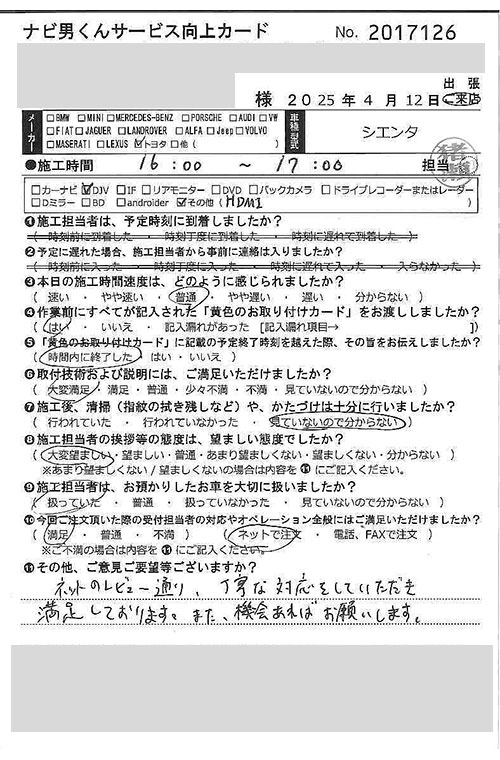 ナビ男くんサービス向上カード No. 2017126
出張
様 2025年4月12日 ご来店
メーカー □BMW □MINI □MERCEDES-BENZ □PORSCHE □AUDI □VW
□FIAT □JAGUER □LANDROVER □ALFA □Jeep □VOLVO
□MASERATI □LEXUS ☑トヨタ □他 ( )
車種型式 シエンタ
●施工時間 16:00 ～ 17:00 担当
□カーナビ ☑DJV □IF □リアモニター □DVD □バックカメラ □ドライブレコーダーまたはレーダー
□Dミラー □BD □androider ☑その他 ( HDMI )
❶施工担当者は、予定時刻に到着しましたか?
( 時刻前に到着した ・ 時刻丁度に到着した ・ 時刻に遅れて到着した )
❷予定に遅れた場合、施工担当者から事前に連絡は入りましたか?
( 時刻前に入った ・ 時刻丁度に入った ・ 時刻に遅れて入った ・ 入らなかった )
❸本日の施工時間速度は、どのように感じられましたか?
( 速い ・ やや速い ・ 普通 ・ やや遅い ・ 遅い ・ 分からない )
❹作業前にすべてが記入された「黄色のお取り付けカード」をお渡ししましたか?
( はい ・ いいえ ・ 記入漏れがあった [記入漏れ項目→ ])
❺「黄色のお取り付けカード」に記載の予定終了時刻を越えた際、その旨をお伝えしましたか?
( 時間内に終了した ・ はい ・ いいえ )
❻取付技術および説明には、ご満足いただけましたか?
( 大変満足 ・ 満足 ・ 普通 ・ 少々不満 ・ 不満 ・ 見ていないので分からない )
❼施工後、清掃(指紋の拭き残しなど)や、かたづけは十分に行いましたか?
( 行われていた ・ 行われていなかった ・ 見ていないので分からない )
❽施工担当者の挨拶等の態度は、望ましい態度でしたか?
( 大変望ましい ・ 望ましい ・ 普通 ・ あまり望ましくない ・ 望ましくない ・ 分からない )
※あまり望ましくない/望ましくないの場合は内容を⓫にご記入ください。
❾施工担当者は、お預かりしたお車を大切に扱いましたか?
( 扱っていた ・ 扱っていなかった ・ 見ていないので分からない )
❿今回ご注文頂いた際の受付担当者の対応やオペレーション全般にはご満足いただけましたか?
( 満足 ・ 普通 ・ 不満 ) ( ネットで注文 ・ 電話、FAXで注文 )
※ご不満の場合は内容を⓫にご記入ください。
⓫その他、ご意見ご要望等ございますか?
ネットのレビュー通り、丁寧な対応をしていただき
満足しております。また、機会あればお願いします。